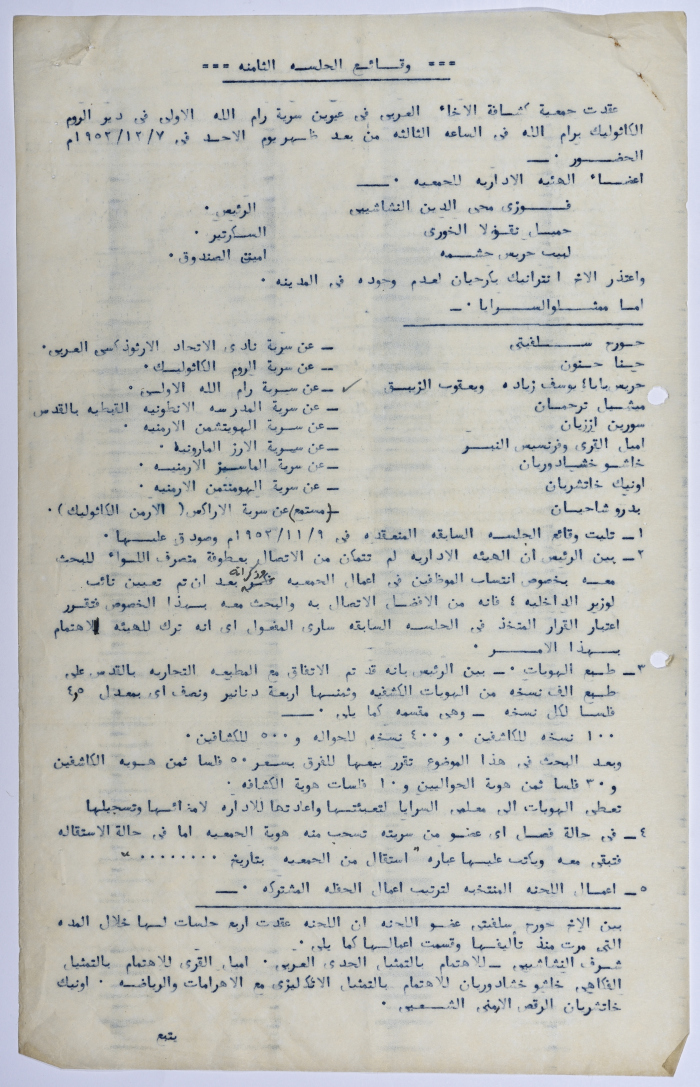 === وقـــائـــع الجلســه الثامنه ===
عقدت جمعية كشافة الاخاء العربي في عيون سرية رام الله الاولى في دير الروم
الكاثوليك برام الله في الساعه الثالثه من بعد ظهر يوم الاحد في ١٩٥٢/١٢/٧م
الحضـــور ٠ ــ
اعضـاء الهئيه الاداريه للجمعيه ٠ ــ
فـــوزى محي الدين النشاشيبي الرئيس ٠
جميـل نقـولا الخورى السـكرتير ٠
لبيب جريس حشـمه امين الصندوق ٠
واعتذر الاخ انترانيك بارجيان لعدم وجوده في المدينه ٠
امـا ممثلـوا السـرايا ٠ ــ
جـورج ســلفيتي ــ عن سرية نادى الاتحاد الارثوذكسي العربي ٠
حينـا حنون ــ عن سرية الروم الكاثوليـك ٠
جريس بابا ٤ يوسف زياده ويعقوب الزبيـق ــ عن سـرية رام الله الاولـى ٠
ميشـيل ترجمـان ــ عن سرية المدرسه الانطونيه القبطيه بالقدس
سورين ازريان ــ عن سـرية الهويتشمن الارمنيه ٠
اميل القرى وفرنسيس النبـر ــ عن سـيرية الارز المارونيه ٠
خاشـو خشـادوريان ــ عن سرية الماسـيز الارمنيـه ٠
اونيك خاتشريان ــ عن سرية الهومنتمن الارمنيه ٠
بدرو شاحيـان ــ (مستمع) عن سرية الاراكس ( الارمن الكاثوليك ) ٠
١ــ تليت وقائع الجلسـه السابقه المنعقده في ١٩٥٢/١١/٩م وصودق عليـها ٠
٢ــ بين الرئيس ان الهيئه الاداريه لم تتمكن من الاتصال بعطوفة متصرف اللـواء للبحث
معـه بخصوص انتساب الموظفين في اعمال الجمعيه بعد ان تم تعيين نائب
لوزير الداخليه ٤ فانه من الافضـل الاتصال به والبحث معـه بـهذا الخصوص فتقـرر
اعتبار القرار المتخذ في الجلسـه السابقه سارى المفعـول اى انه ترك للهيئه الاهتمام
بـهذا الامـــر ٠
٣ــ طبـع الهويات ٠ ــ بين الرئيس بانه قد تم الاتفاق مع المطبعه التجاريه بالقدس على
طبـع الف نسخه من الهويات الكشفيه وثمنـها اربعـة دنانير ونصف اى بمعدل ٤٫٥
فلسـا لكل نسخه ــ وهي مقسمه كما يلي ٠ ــ
١٠٠ نسخه للكاشفين ٠ و ٤٠٠ نسخه للجواله و ٥٠٠ للكشافين ٠
وبعد البحث في هذا الموضوع تقرر بيعـها للفرق بسـعر ٥٠ فلسا ثمن هويـه الكاشفين
و ٣٠ فلسا ثمن هوية الجواليين و ١٠ فلسات هوية الكشافه ٠
تعطى الهويات الى معلمي السرايا لتعبئتـها واعادتـها للاداره لامضائـها وتسجيلـها
٤ــ في حالة فصـل اى عضـو من سريته تسحب منه هوية الجمعيـه اما في حالة الاستقاله
فتبقى معه ويكتب عليـها عباره " استقال من الجمعيه بتاريخ ٠٠٠٠٠٠٠٠٠ "
٥ــ اعمـال اللجنه المنتخبه لترتيب اعمال الحفله المشتركه ٠ ــ
بين الاخ جورج سلفيتي عضـو اللجنه ان اللجنه عقدت اربع جلسات لـها خلال المده
التي مرت منذ تأليفـها وقسمت اعمالـها كما يلي ٠
شـرف النشاشيبي ــ للاهتمام بالتمثيل الجدى العربي ٠ اميل القرى للاهتمام بالتمثيل
الفكاهي خاشو خشادوريان للاهتمام بالتمثيل الانكليزى مع الاهرامات والرياضـه ٠ اونيك
خاتشريان الرقص الارمني الشـعبي ٠
يتبع